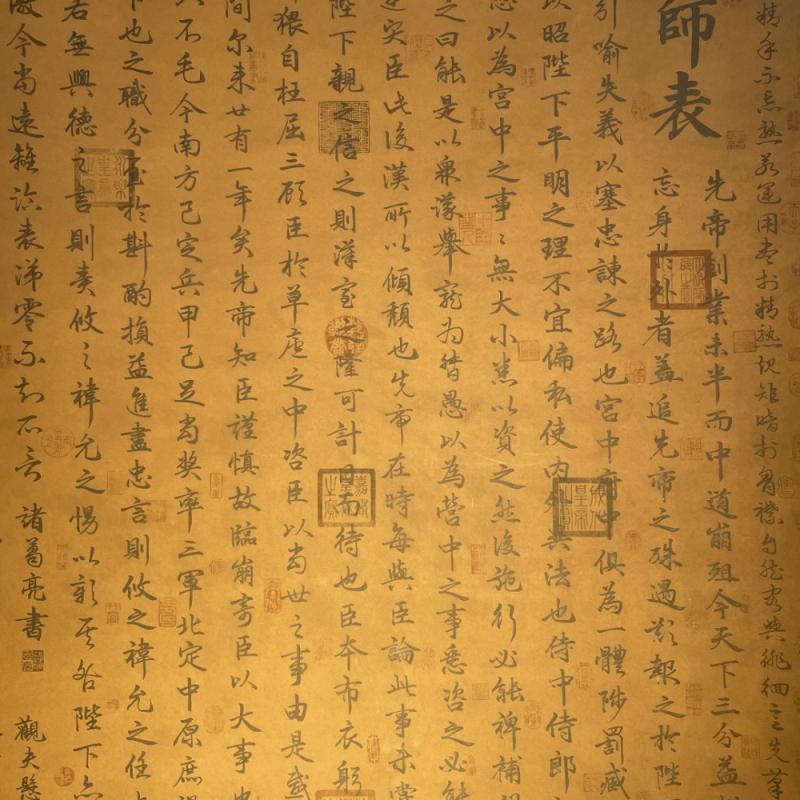 精手不忘熟若運用盡於精熟規矩暗於胷襟自然容與徘徊意先筆
師表
先帝創業未半而中道崩殂今天下三分益
忘身於外者蓋追先帝之殊遇欲報之於陛
引喻失義以塞忠諫之路也宮中府中俱為一體陟罰臧
以昭陛下平明之理不宜偏私使內外異法也侍中侍郎
愚以為宮中之事〻無大小悉以資之然後施行必能裨補
之曰能是以衆議舉寵為督愚以為營中之事悉咨之必能
賢臣此後漢所以傾頹也先帝在時每與臣論此事未嘗
陛下親之信之則漢室之隆可計日而待也臣本布衣躬
猥自枉屈三顧臣於草廬之中咨臣以當世之事由是感
間尔来廿有一年矣先帝知臣謹慎故臨崩寄臣以大事也
不毛今南方已定兵甲已足當奬率三軍北定中原庶竭
下也之職分至於斟酌損益進盡忠言則攸之禕允之任也
若無興德之言則責攸之禕允之慢以彰其咎陛下亦
激今當遠離臨表涕零不知所言 諸葛亮書
觀夫懸